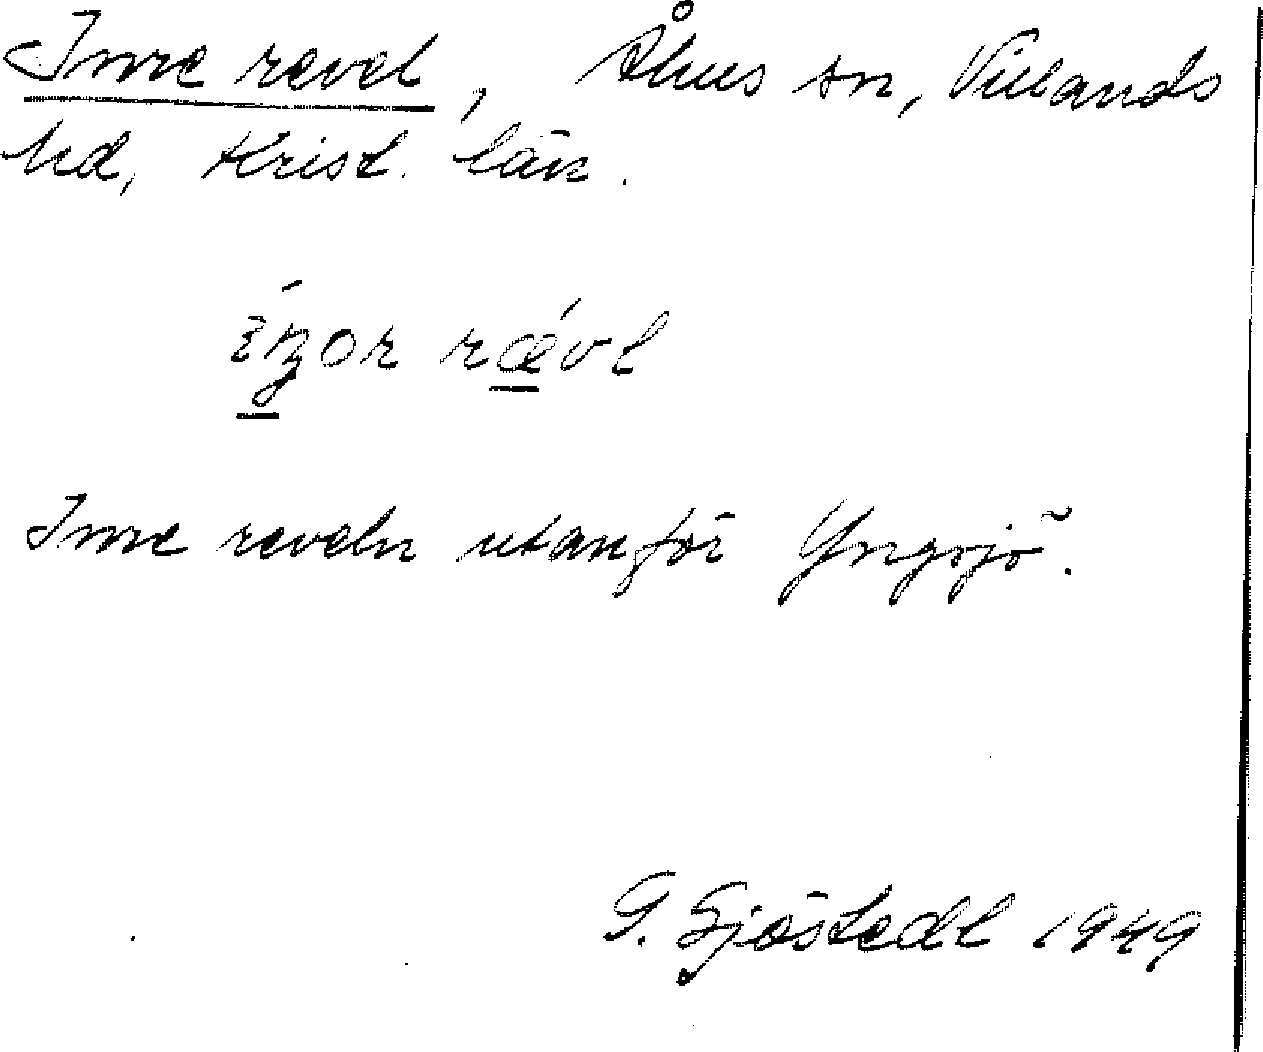 Inre revel, Åhus sn, Villands
hd, Krist. län.
rǽvl
Inre reveln utanför Yngsjö.
G. Sjöstedt 1949